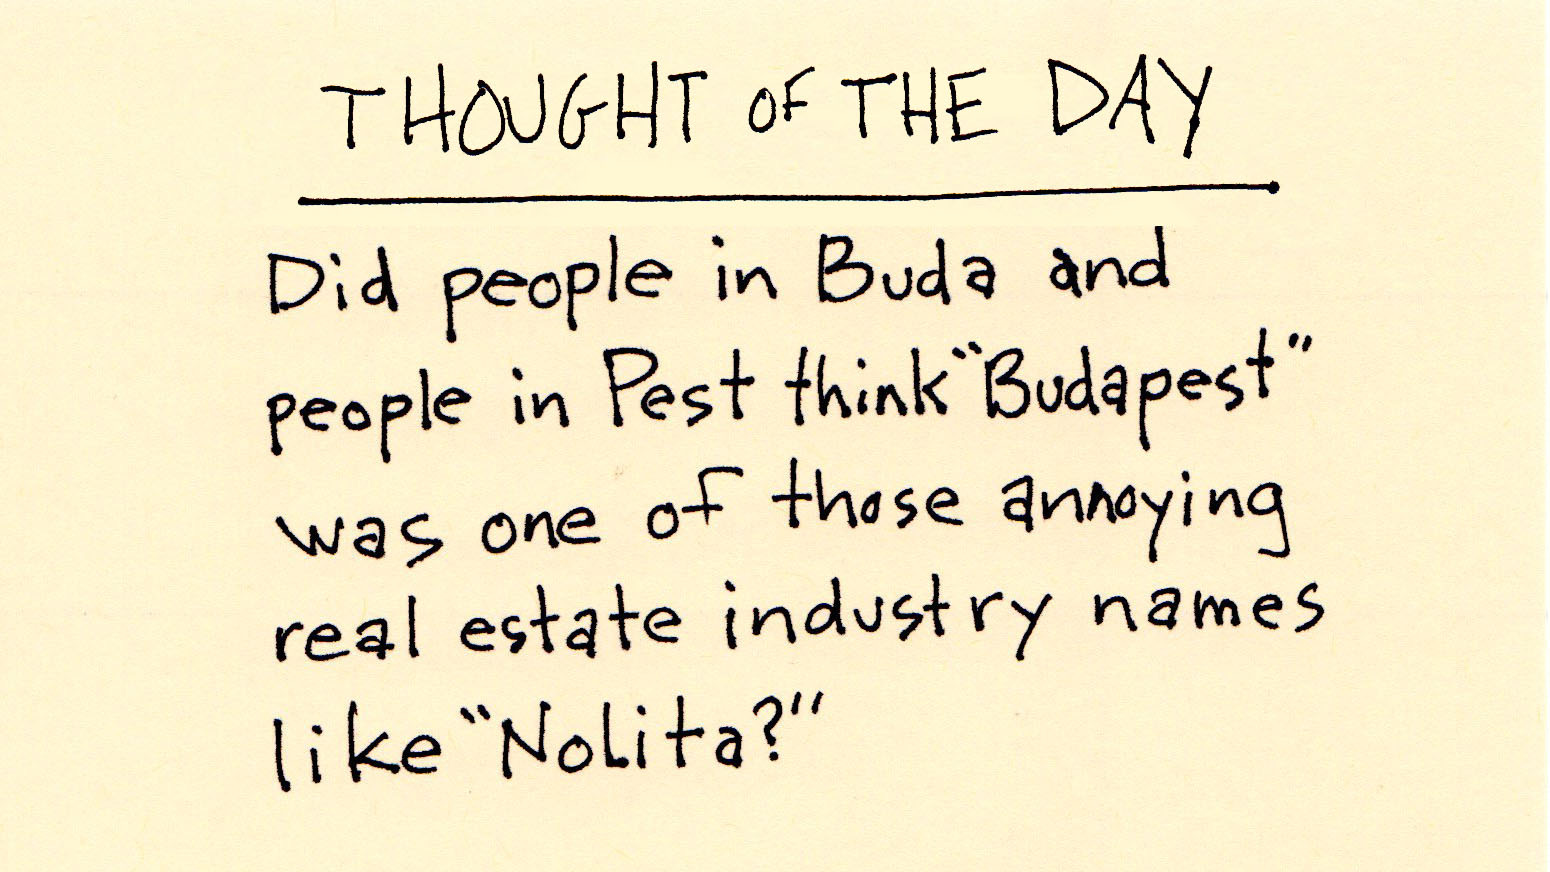 THOUGHT OF THE DAY
Did people in Buda and
people in Pest think “Budapest”
was one of those annoying
real estate industry names
like “Nolita?”